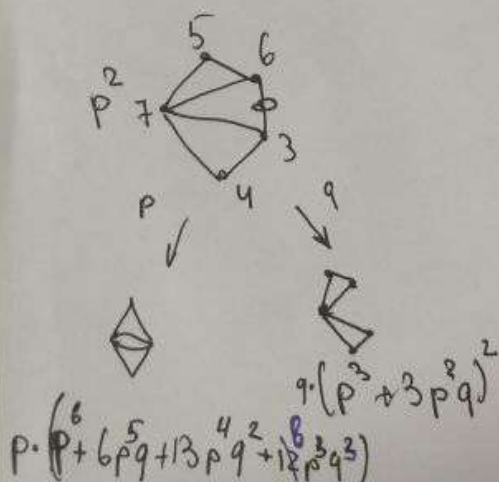 5
6
p²
7
3
4
p
q
q·(p³ + 3p²q)²
p·(p⁶ + 6p⁵q + 13p⁴q² + 8p³q³)